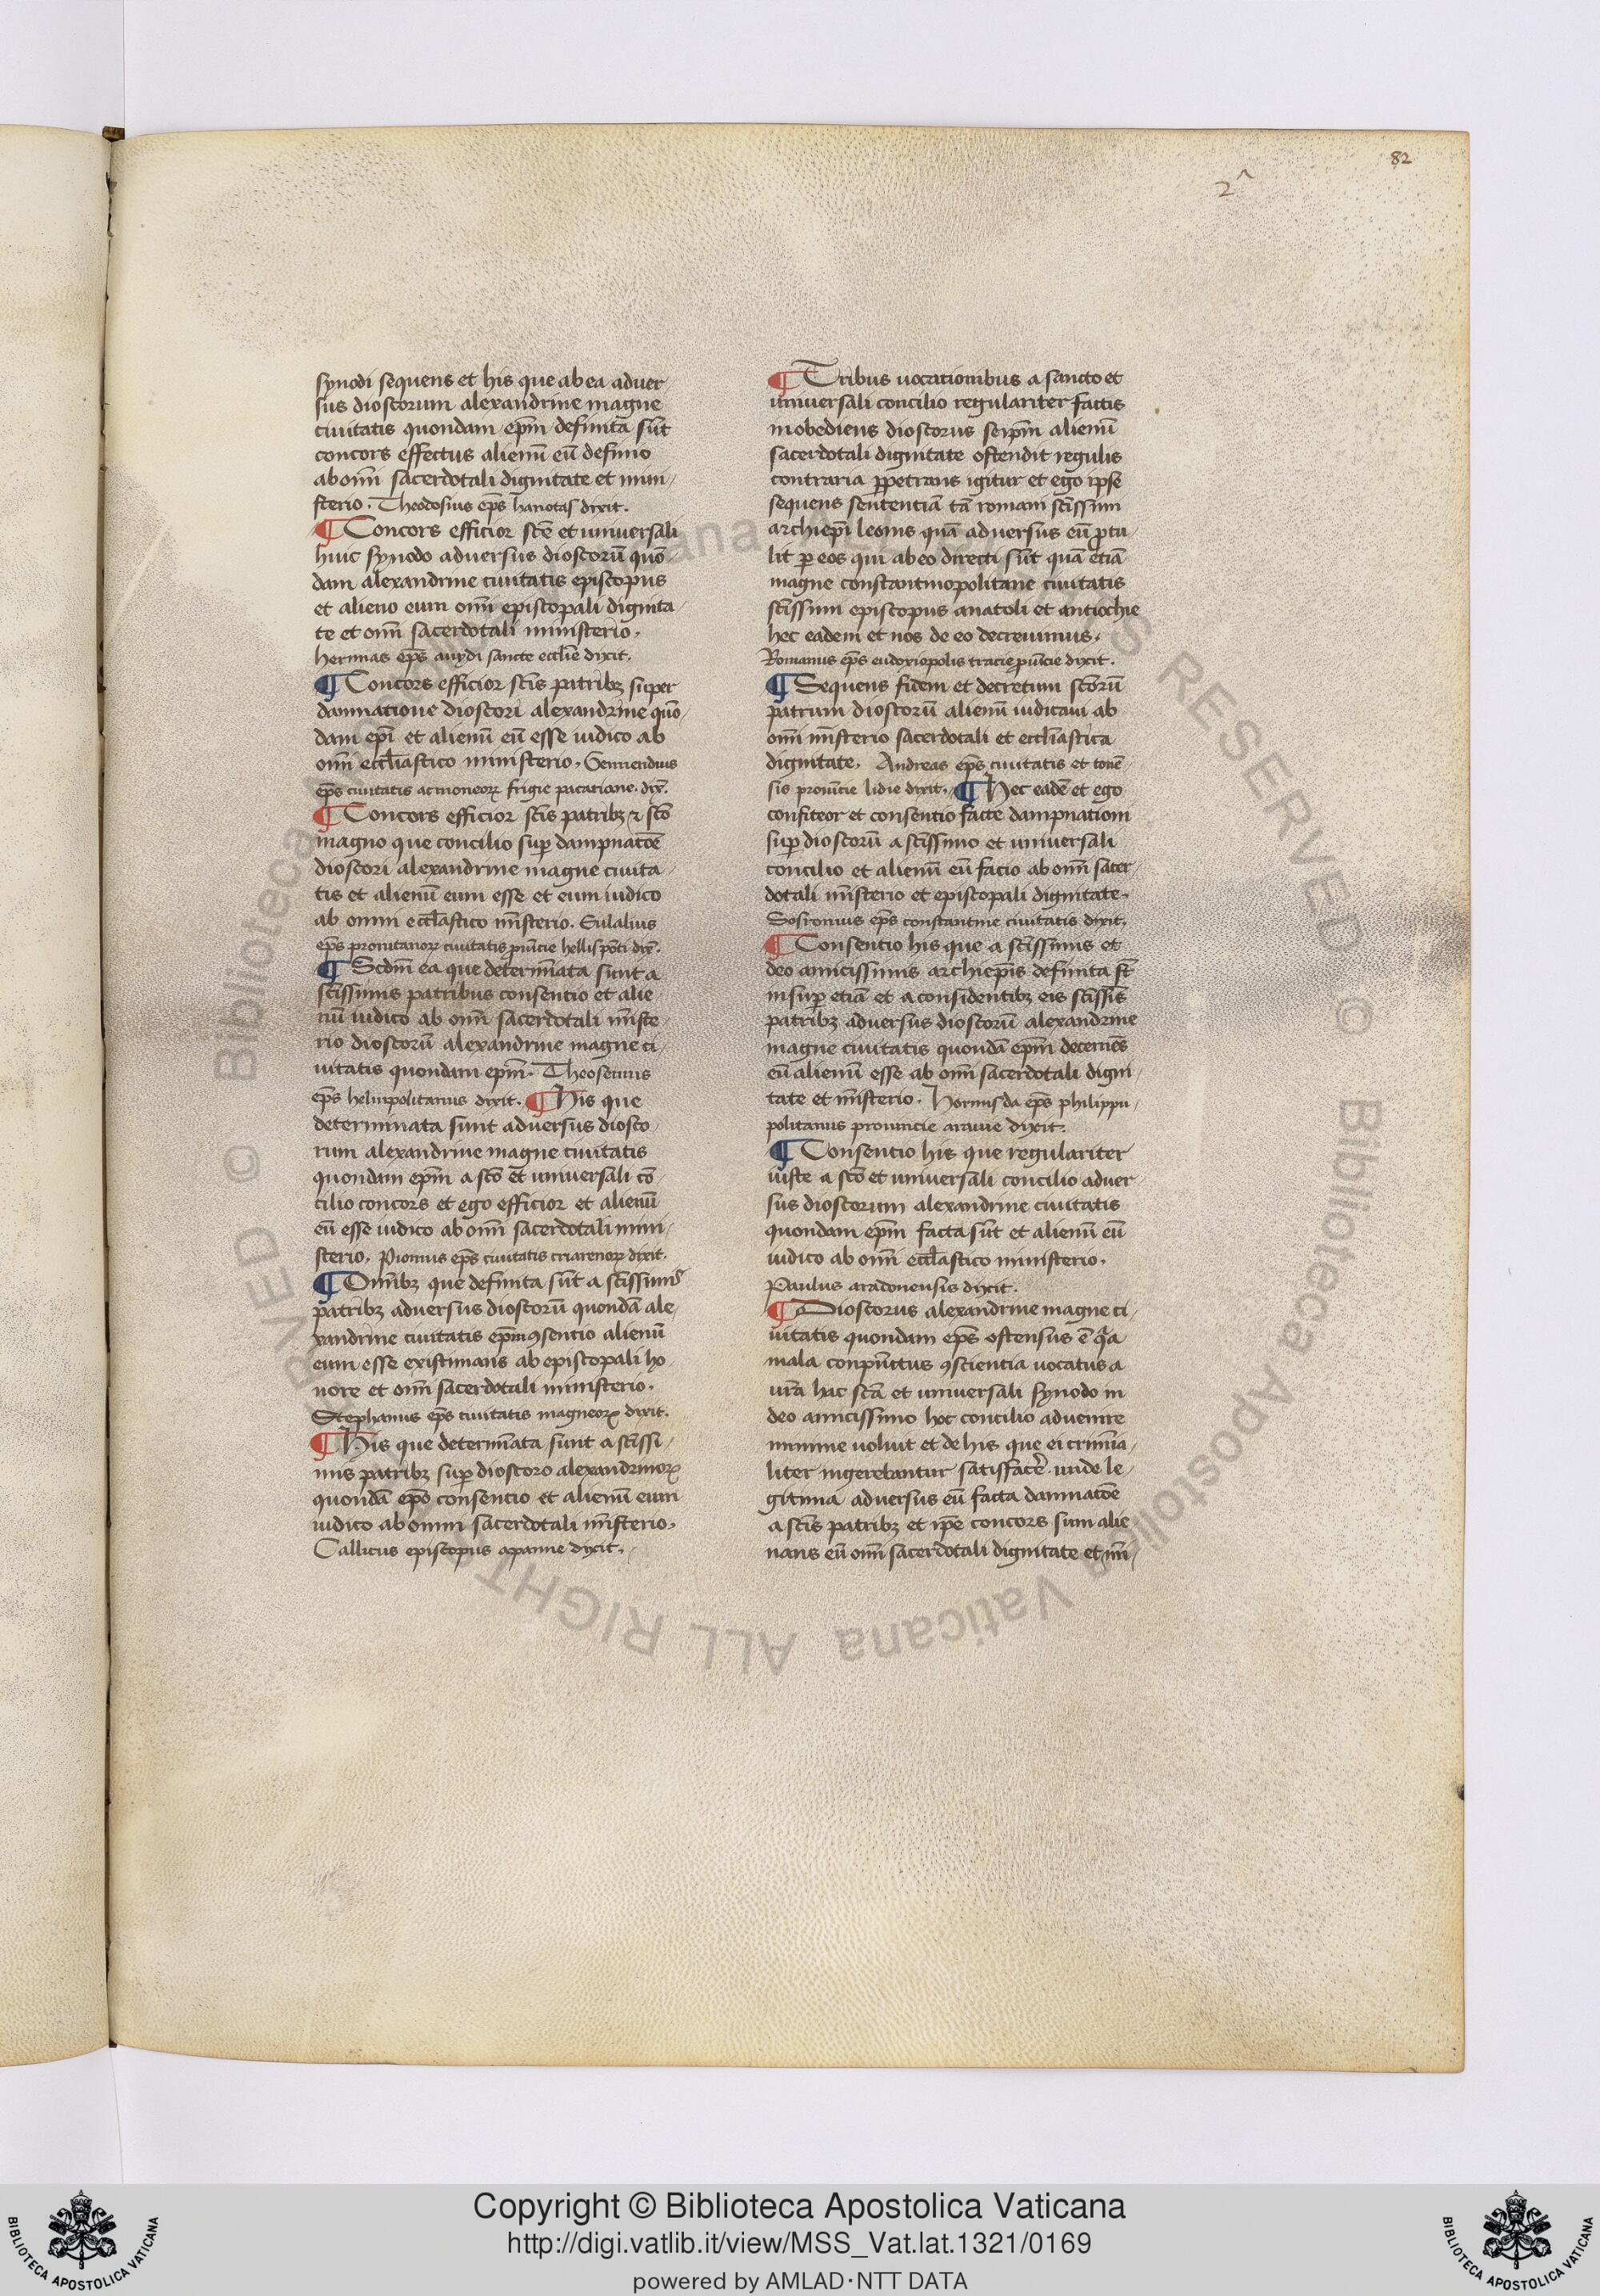 82
2^
synodi sequens et his que ab ea aduer
sus dioscorum alexandrine magne
ciuitatis quondam ep̄m definita sūt
concors effectus alienū eū definio
ab om̄i sacerdotali dignitate et mini
sterio. Theodosius ep̄s hanotas dixit.
¶ Concors efficior scē et uniuersali
huic synodo aduersus dioscorū quō
dam alexandrine ciuitatis episcopus
et alieno eum om̄i episcopali dignita
te et om̄i sacerdotali ministerio.
hermas ep̄s auydi sancte eccl̄ie dixit.
¶ Concors efficior sc̄is patribꝫ super
damnatione dioscori alexandrine quō
dam ep̄i et alienū eū esse iudico ab
om̄i eccl̄iastico ministerio. Gennendius
ep̄s ciuitatis acmoneoꝝ frigie pacatiane. dix̄.
¶ Concors efficior sc̄is patribꝫ ⁊ scō
magno que concilio suꝑ dampnatōe
dioscori alexandrine magne ciuita
tis et alienū eum esse et eum iudico
ab omni eccl̄astico mīsterio. Eulalius
ep̄s pronitanoꝝ ciuitatis ꝓuīcie hellispōti dix̄.
¶ Scdm̄ ea que determīata sunt a
sc̄issimis patribus consentio et alie
nū iudico ab om̄i sacerdotali mīste
rio dioscorū alexandrine magne ci
uitatis quondam ep̄m. Theosenius
ep̄s heliupolitanus dixit. ¶ His que
determinata sunt aduersus diosco
rum alexandrine magne ciuitatis
quondam ep̄m a scō et uniuersali cō
cilio concors et ego efficior et alienū
eū esse iudico ab om̄i sacerdotali mini
sterio. Pionius ep̄s ciuitatis criarenoꝝ dixit.
¶ Omībꝫ que definita sūt a sc̄issimis
patribꝫ aduersus dioscorū quondā ale
xandrine ciuitatis ep̄m ꝯsentio alienū
eum esse existimans ab episcopali ho
nore et om̄i sacerdotali ministerio.
Stephanus ep̄s ciuitatis magneoꝝ dixit.
¶ His que determīata sunt a sc̄issi
mis patribꝫ suꝑ dioscoro alexandrinoꝝ
quondā ep̄o consentio et alienū eum
iudico ab omni sacerdotali mīsterio.
Callicus episcopus apanne dixit.
¶ Tribus uocationibus a sancto et
uniuersali concilio regulariter factis
inobediens dioscorus seip̄m alienū
sacerdotali dignitate ostendit regulis
contraria ꝑpetrans igitur et ego ipse
sequens sententiā tā romani sc̄issimi
archiep̄i leonis quā aduersus eū ꝓtu
lit ꝑ eos qui ab eo directi sūt quā etiā
magne constantinopolitane ciuitatis
sc̄issimi episcopus anatoli et antiochie
hec eadem et nos de eo decreuimus.
Romanus ep̄s eudoxiopolis tracie ꝓuīcie dixit.
¶ Sequens fidem et decretum sc̄orū
patrum dioscorū alienū iudicaui ab
om̄i mīsterio sacerdotali et eccl̄iastica
dignitate. Andreas ep̄s ciuitatis et tonē
sis prouīcie lidie dixit. ¶ Hec eadē et ego
confiteor et consentio facte dampnationi
suꝑ dioscorū a sc̄issimo et uniuersali
concilio et alienū eū facio ab om̄i sacer
dotali mīsterio et episcopali dignitate.
Sofronius ep̄s constantine ciuitatis dixit.
¶ Consentio his que a sc̄issimis et
deo amicissimis archiep̄is definita st̄
insuꝑ etiā et a considentibꝫ eis sc̄issis̄
patribꝫ aduersus dioscorū alexandrine
magne ciuitatis quondā ep̄m decernēs
eū alienū esse ab om̄i sacerdotali digni
tate et mīsterio. Hormisda ep̄s philippu
politanus prouincie aruuie dixit.
¶ Consentio his que regulariter
iuste a scō et uniuersali concilio aduer
sus dioscorum alexandrine ciuitatis
quondam ep̄m facta sūt et alienū eū
iudico ab om̄i eccl̄astico ministerio.
Paulus aradonensis dixit.
¶ Dioscorus alexandrine magne ci
uitatis quondam ep̄s ostensus ē qꝛa
mala conpūctus ꝯscientia uocatus a
ur̄a hac scā et uniuersali synodo in
deo amicissimo hoc concilio aduenire
minime uoluit et de his que ei crimīa
liter ingerebantur satisfacer̄e. unde le
gitima aduersus eū facta damnatōe
a sc̄is patribꝫ et ip̄e concors sum alie
nans eū om̄i sacerdotali dignitate et mī
Copyright © Biblioteca Apostolica Vaticana
http://digi.vatlib.it/view/MSS_Vat.lat.1321/0169
powered by AMLAD·NTT DATA
BIBLIOTECA APOSTOLICA VATICANA
BIBLIOTECA APOSTOLICA VATICANA